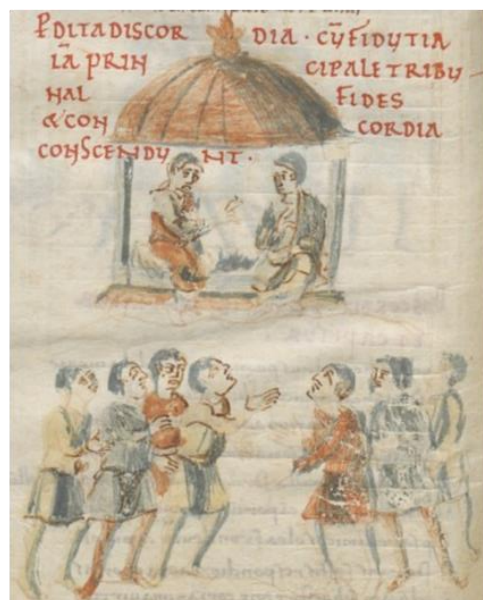 ꝐDITADISCOR DIA · CŪFIDVTIA
IĀ PRIN CIPALETRIBV
NAL FIDES
&CON CORDIA
CONSCENDV NT ·